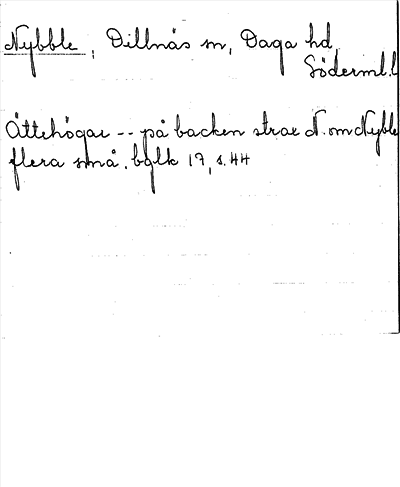 Nybble, Dillnäs sn, Daga hd,
Söderml. l
Ättehögar -- på backen strax N. om Nyble
flera små. bglk 19, s. 44